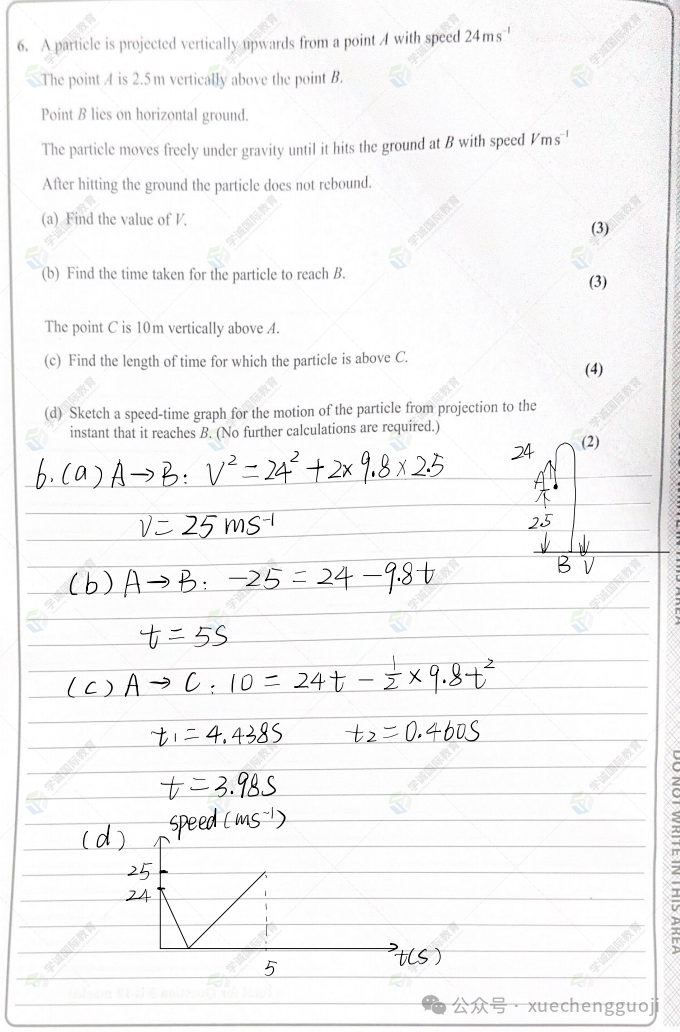 6. A particle is projected vertically upwards from a point A with speed 24 m s⁻¹
The point A is 2.5 m vertically above the point B.
Point B lies on horizontal ground.
The particle moves freely under gravity until it hits the ground at B with speed V m s⁻¹
After hitting the ground the particle does not rebound.
(a) Find the value of V.
(3)
(b) Find the time taken for the particle to reach B.
(3)
The point C is 10 m vertically above A.
(c) Find the length of time for which the particle is above C.
(4)
(d) Sketch a speed-time graph for the motion of the particle from projection to the
instant that it reaches B. (No further calculations are required.)
(2)
6. (a) A → B: V² = 24² + 2 × 9.8 × 2.5
V = 25 ms⁻¹
24
A
2.5
B V
(b) A → B: -25 = 24 - 9.8t
t = 5s
(c) A → C: 10 = 24t - 1/2 × 9.8t²
t₁ = 4.438s t₂ = 0.460s
t = 3.98s
(d) speed (ms⁻¹)
25
24
5
t(s)
DO NOT WRITE IN THIS AREA
学诚国际教育
公众号 · xuechengguoji